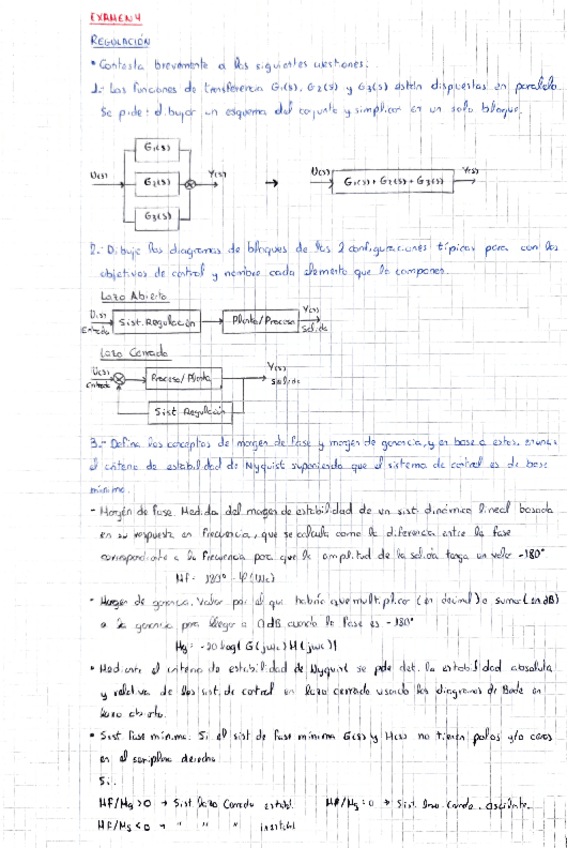 EXAMEN 4
REGULACIÓN
• Contesta brevemente a las siguientes cuestiones:
1.- Las funciones de transferencia G1(s), G2(s) y G3(s) están dispuestas en paralelo.
Se pide: dibujar un esquema del conjunto y simplicar en un solo bloque.
G1(s)
U(s)
G2(s)
Y(s)
G3(s)
U(s)
G1(s) + G2(s) + G3(s)
Y(s)
2.- Dibuje los diagramas de bloques de las 2 configuraciones típicas para con los
objetivos de control y nombre cada elemento que lo componen.
Lazo Abierto
U(s)
Entrada
Sist. Regulación
Planta/Proceso
Y(s)
Salida
Lazo Cerrado
U(s)
Entrada
Proceso/Planta
Y(s)
Salida
Sist Regulación
3.- Define los conceptos de margen de fase y margen de ganancia, y en base a estos, enuncie
el criterio de estabilidad de Nyquist suponiendo que el sistema de control es de fase
mínima.
- Margen de fase. Medida del margen de estabilidad de un sist. dinámico lineal basada
en su respuesta en frecuencia, que se calcula como la diferencia entre la fase
correspondiente a la frecuencia para que la amplitud de la salida tenga un valor -180°
Mf = 180° - φ(ωc)
• Margen de ganancia. Valor por el que habría que multiplicar (en decimal) o sumar (en dB)
a la ganancia para llegar a 0dB cuando la fase es -180°
Mg = -20 log | G(jωc) H(jωc) |
• Mediante el criterio de estabilidad de Nyquist se pde det. la estabilidad absoluta
y relativa de los sist. de control en lazo cerrado usando los diagramas de Bode en
lazo abierto.
• Sist. fase mínima: Si el sist de fase mínima G(s) y H(s) no tienen polos y/o ceros
en el semiplano derecho
Si:
Mf/Mg >0 → Sist. lazo Cerrado estable. Mf/Mg = 0 → Sist. lazo cerrado. oscilante.
Mf/Mg <0 → " " " inestabl